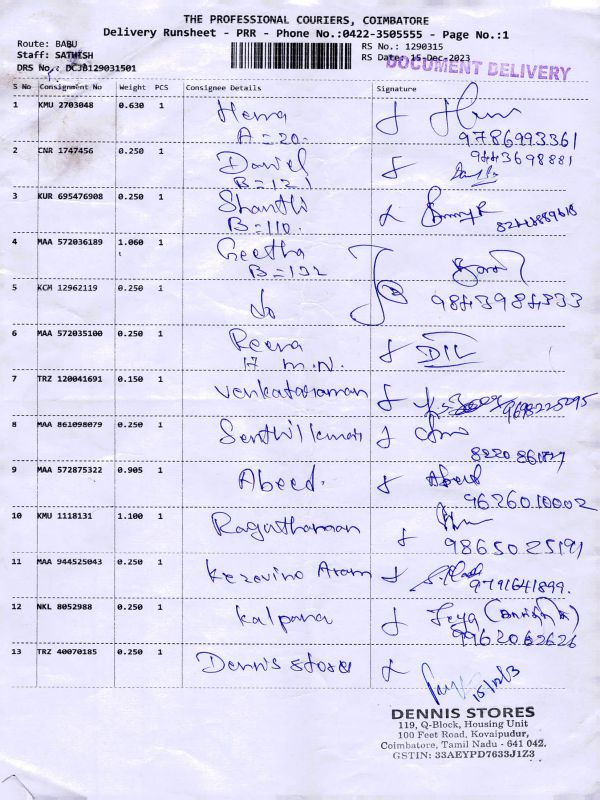 THE PROFESSIONAL COURIERS, COIMBATORE
Delivery Runsheet - PRR - Phone No.:0422-3505555 - Page No.:1
Route: BABU
Staff: SATHISH
DRS No.: DCJB129031501
RS No.: 1290315
RS Date: 15-Dec-2023
DOCUMENT DELIVERY
S No Consignment No Weight PCS Consignee Details Signature
1 KMU 2703048 0.630 1 Hema
A = 20.
9786993361
2 CNR 1747456 0.250 1 Daniel
B = 121
9443698881
3 KUR 695476908 0.250 1 Shanthi
B = 110.
4 MAA 572036189 1.060 1 Geetha
B = 132
5 KCM 12962119 0.250 1 do
9843984333
6 MAA 572035100 0.250 1 Reena
17 M.N.
7 TRZ 120041691 0.150 1 Venkataraman
9698225095
8 MAA 861098079 0.250 1 Senthil kumar
9 MAA 572875322 0.905 1 Abeed.
Abeed
9626010002
10 KMU 1118131 1.100 1 Ragothaman
9865025191
11 MAA 944525043 0.250 1
9791641899.
12 NKL 8052988 0.250 1 Kalpana
Jeya
9962062626
13 TRZ 40070185 0.250 1 Dennis Stores
15/12/23
DENNIS STORES
119, Q-Block, Housing Unit
100 Feet Road, Kovaipudur,
Coimbatore, Tamil Nadu - 641 042.
GSTIN: 33AEYPD7633J1Z3